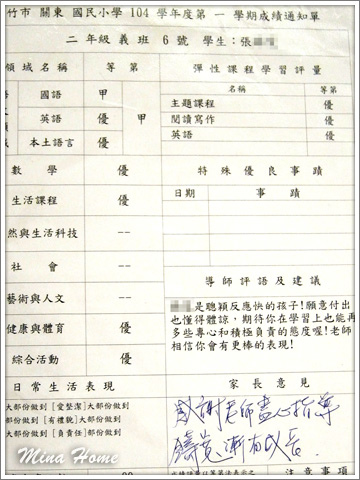 竹市 關東 國民小學 104 學年度第 一 學期成績通知單
二 年級 義 班 6 號 學生：張
領域名稱 等第 彈性課程學習評量
國語 甲
名稱 等第
主題課程 優
英語 優 甲
閱讀寫作 優
本土語言 優
英語 優
數學 優 特殊優良事蹟
生活課程 優
日期 事蹟
然與生活科技 --
社會 --
導師評語及建議
藝術與人文 --
是聰穎反應快的孩子!願意付出
也懂得體諒，期待你在學習上也能再
健康與體育 優
多些專心和積極負責的態度喔!老師
綜合活動 優
相信你會有更棒的表現!
日常生活表現 家長意見
大部份做到 [愛整潔]大部份做到
大部份做到 [有禮貌]大部份做到
大部份做到 [負責任]部份做到
感謝老師盡心指導
漸有成長
注意事項
Mina Home